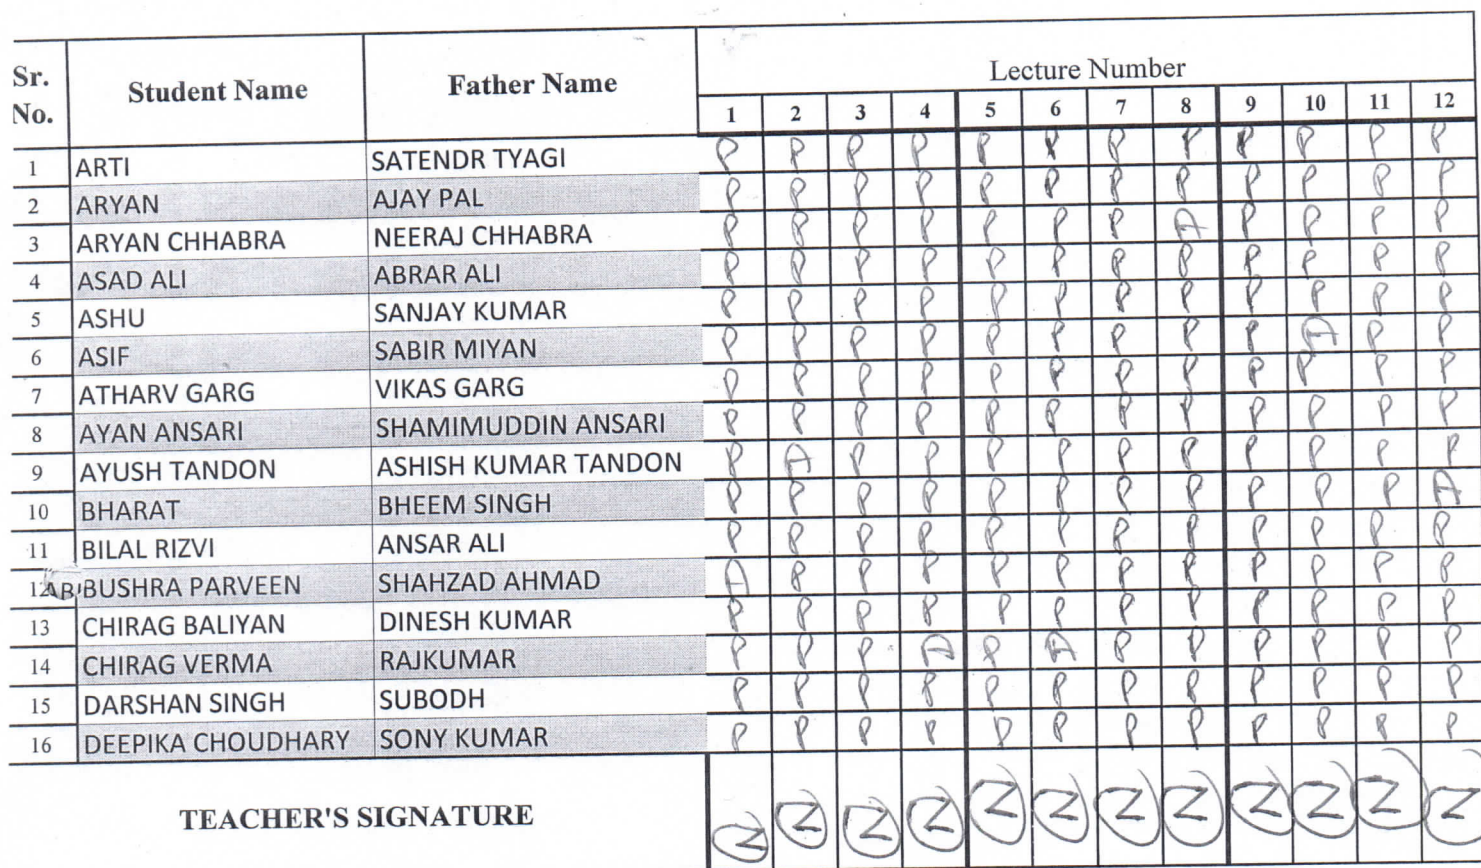 Sr. No. Student Name Father Name Lecture Number
1 2 3 4 5 6 7 8 9 10 11 12
1 ARTI SATENDR TYAGI P P P P P P P P P P P P
2 ARYAN AJAY PAL P P P P P P P P P P P P
3 ARYAN CHHABRA NEERAJ CHHABRA P P P P P P P A P P P P
4 ASAD ALI ABRAR ALI P P P P P P P P P P P P
5 ASHU SANJAY KUMAR P P P P P P P P P P P P
6 ASIF SABIR MIYAN P P P P P P P P P A P P
7 ATHARV GARG VIKAS GARG P P P P P P P P P P P P
8 AYAN ANSARI SHAMIMUDDIN ANSARI P P P P P P P P P P P P
9 AYUSH TANDON ASHISH KUMAR TANDON P A P P P P P P P P P P
10 BHARAT BHEEM SINGH P P P P P P P P P P P A
11 BILAL RIZVI ANSAR ALI P P P P P P P P P P P P
12 AB BUSHRA PARVEEN SHAHZAD AHMAD A P P P P P P P P P P P
13 CHIRAG BALIYAN DINESH KUMAR P P P P P P P P P P P P
14 CHIRAG VERMA RAJKUMAR P P P A P A P P P P P P
15 DARSHAN SINGH SUBODH P P P P P P P P P P P P
16 DEEPIKA CHOUDHARY SONY KUMAR P P P P P P P P P P P P
TEACHER'S SIGNATURE N Z N N Z Z Z Z Z Z Z Z